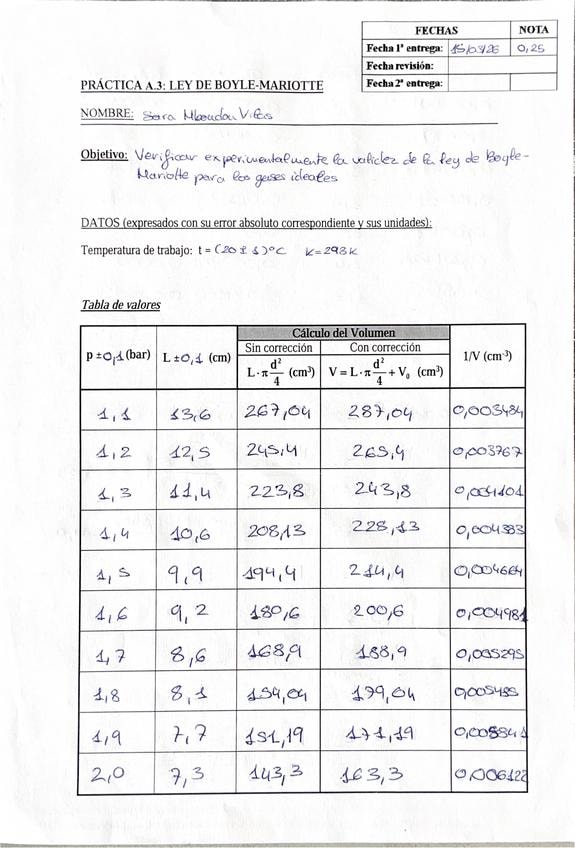 FECHAS NOTA
Fecha 1ª entrega: 15/03/26 0,25
Fecha revisión:
Fecha 2ª entrega:
PRÁCTICA A.3: LEY DE BOYLE-MARIOTTE
NOMBRE: Sara
Objetivo: Verificar experimentalmente la validez de la ley de Boyle-
Mariotte para los gases ideales
DATOS (expresados con su error absoluto correspondiente y sus unidades):
Temperatura de trabajo: t = (20 ± 1)ºC K=293K
Tabla de valores
Cálculo del Volumen
p ±0,1 (bar) L ±0,1 (cm) Sin corrección Con corrección 1/V (cm⁻³)
L·π d²/4 (cm³) V = L·π d²/4 + V₀ (cm³)
1,1 13,6 267,04 287,04 0,003484
1,2 12,5 245,4 265,4 0,003767
1,3 11,4 223,8 243,8 0,004101
1,4 10,6 208,13 228,13 0,004383
1,5 9,9 194,4 214,4 0,004664
1,6 9,2 180,6 200,6 0,004981
1,7 8,6 168,9 188,9 0,005295
1,8 8,1 159,04 179,04
1,9 7,7 151,19 171,19 0,005841
2,0 7,3 143,3 163,3 0,006122